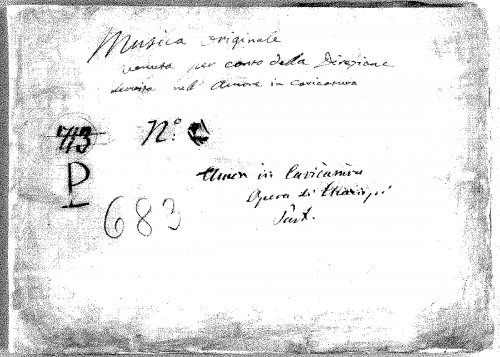 Musica originale
venuta per conto della Direzione
servita nell' Amore in Caricatura
713
N.º
P
Amor in Caricatura
Opera di Ciampi
Part.
683